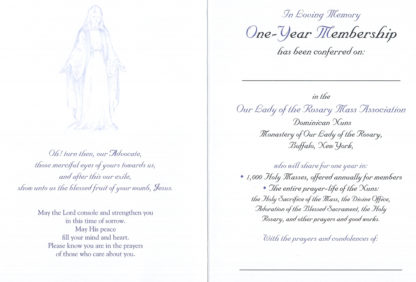 Oh! turn then, our Advocate,
those merciful eyes of yours towards us;
and after this our exile,
show unto us the blessed fruit of your womb, Jesus.
May the Lord console and strengthen you
in this time of sorrow.
May His peace
fill your mind and heart.
Please know you are in the prayers
of those who care about you.
In Loving Memory
One-Year Membership
has been conferred on:
in the
Our Lady of the Rosary Mass Association
Dominican Nuns
Monastery of Our Lady of the Rosary,
Buffalo, New York,
who will share for one year in:
• 1,000 Holy Masses, offered annually for members
• The entire prayer-life of the Nuns:
the Holy Sacrifice of the Mass, the Divine Office,
Adoration of the Blessed Sacrament, the Holy
Rosary, and other prayers and good works.
With the prayers and condolences of: